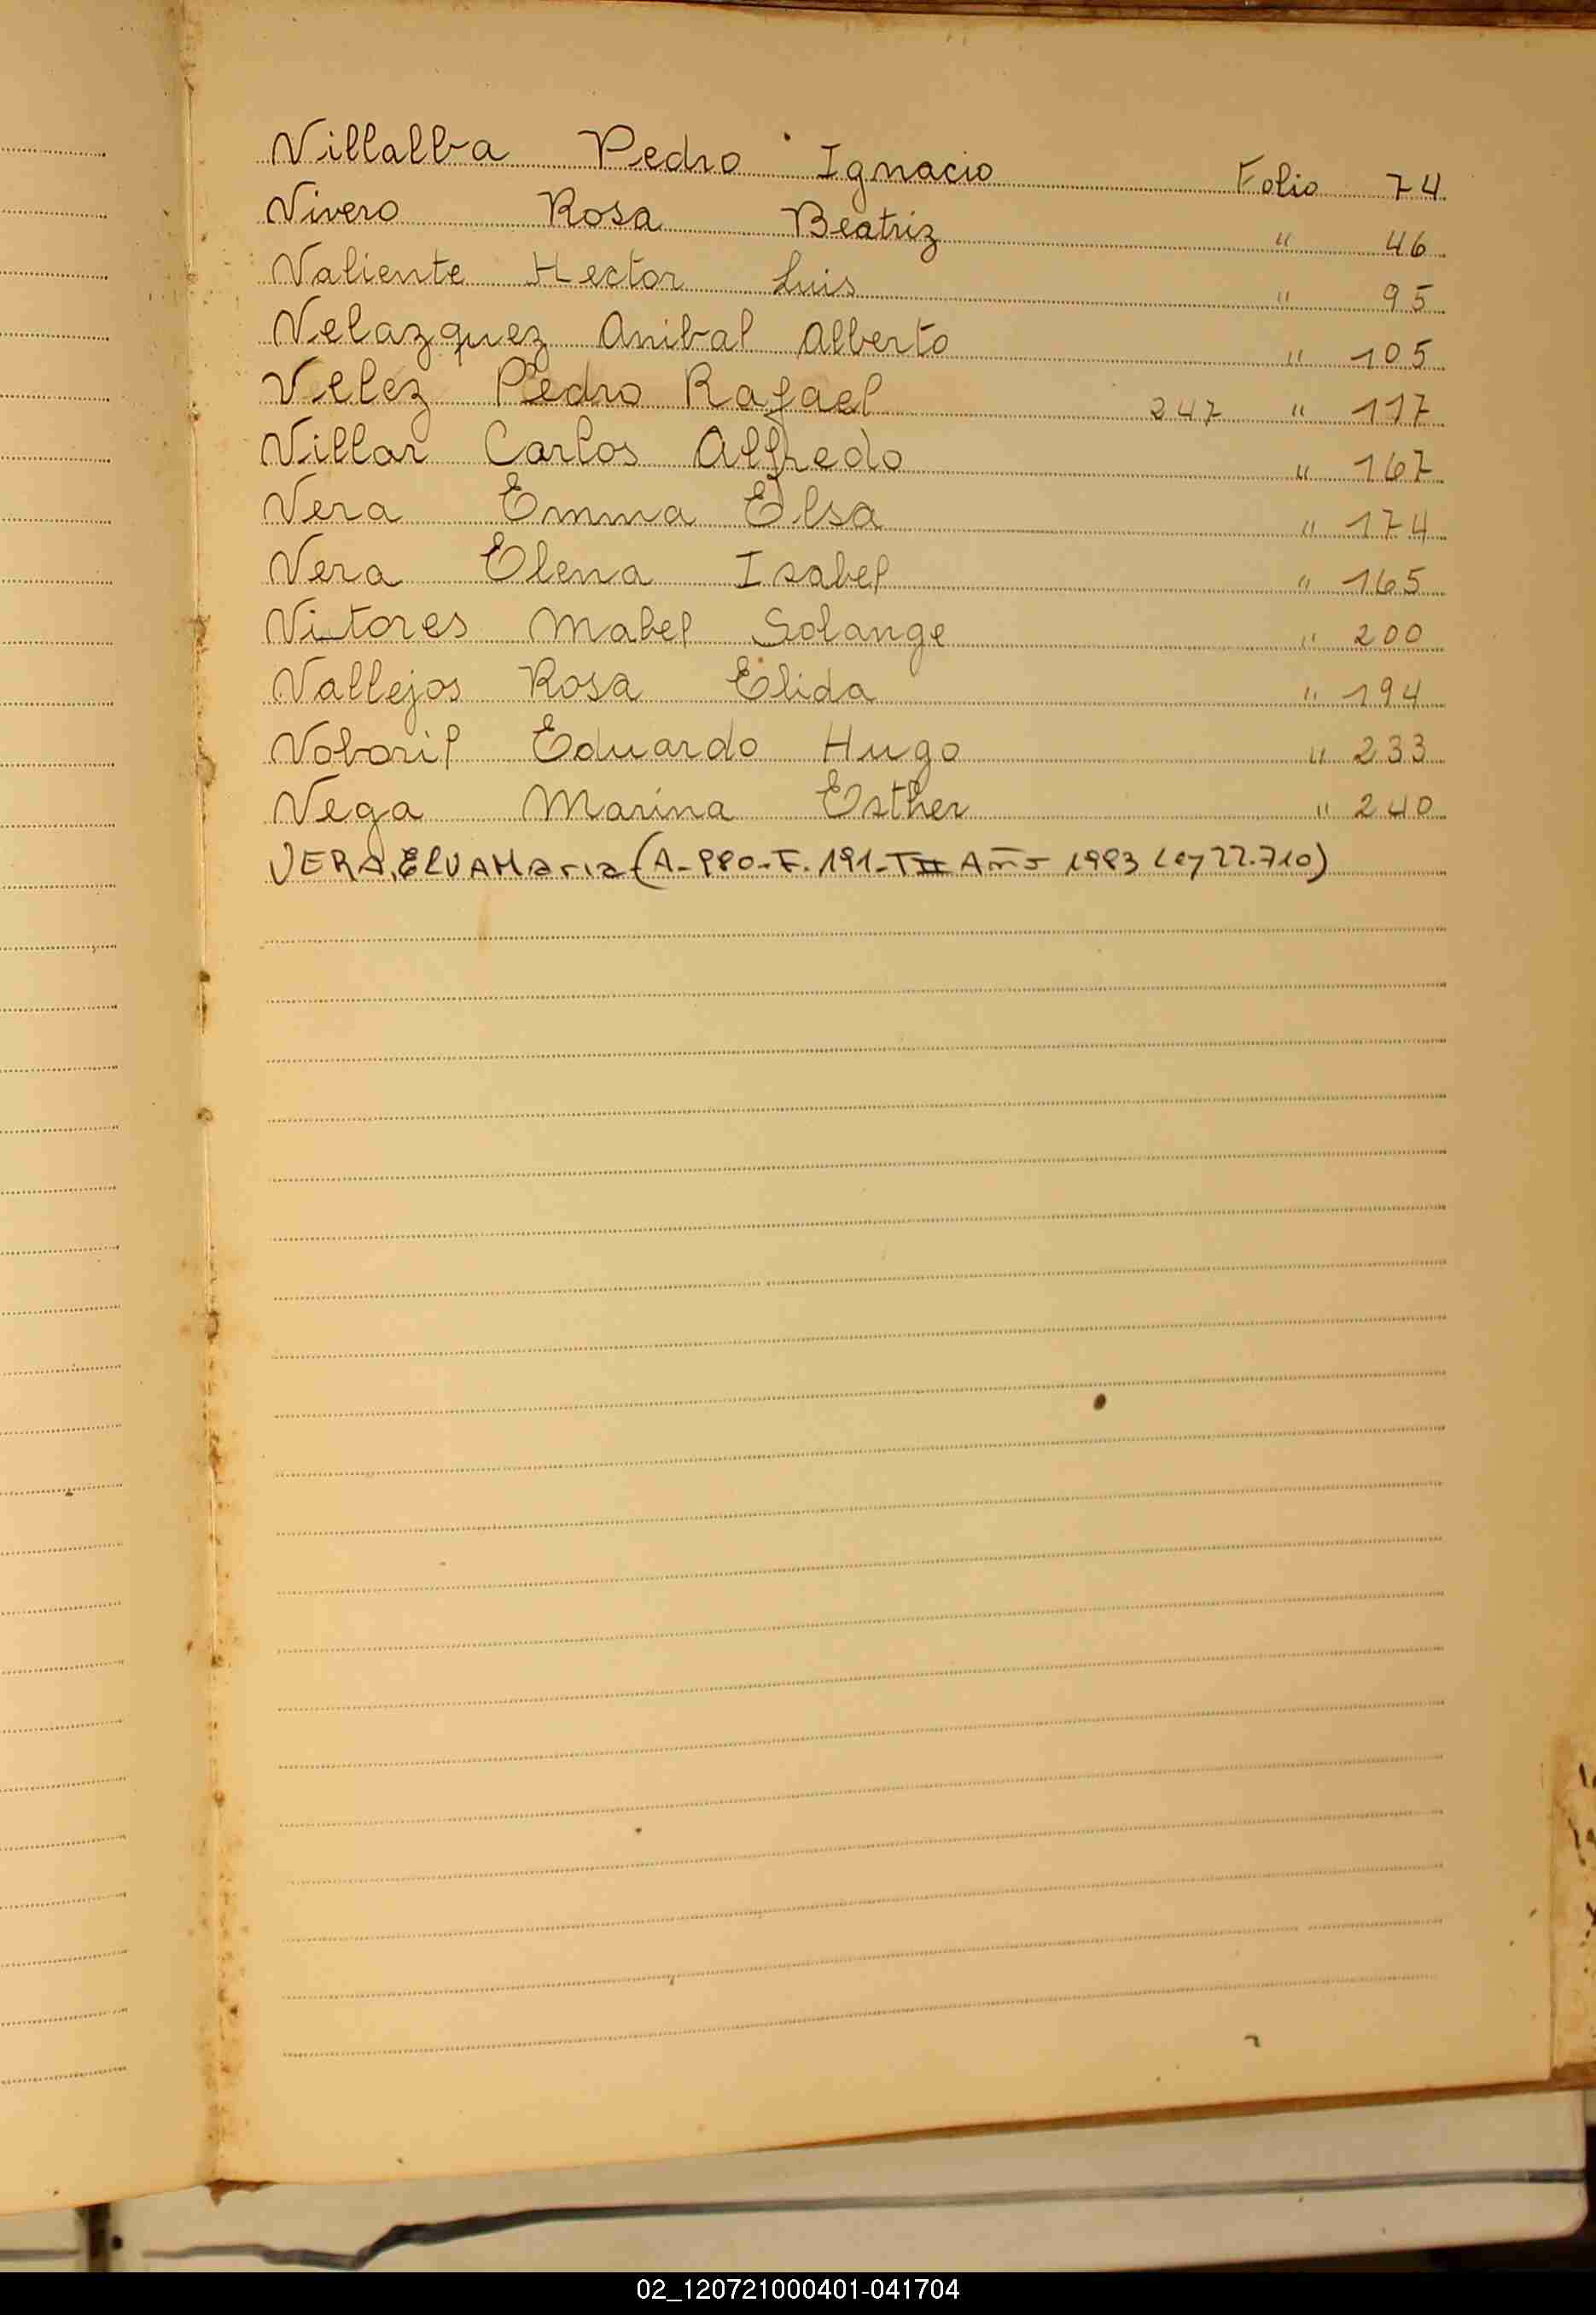 Villalba Pedro Ignacio Folio 74
Vivero Rosa Beatriz " 46
Valiente Hector Luis " 95
Velazquez Anibal Alberto " 105
Velez Pedro Rafael 247 " 117
Villar Carlos Alfredo " 167
Vera Emma Elsa " 174
Vera Elena Isabel " 165
Vitores Mabel Solange " 200
Vallejos Rosa Elida " 194
Voboril Eduardo Hugo " 233
Vega Marina Esther " 240
VERA, ElVA Maria (A-980-F. 191-TII Año 1983 Ley 22.710)
02_120721000401-041704